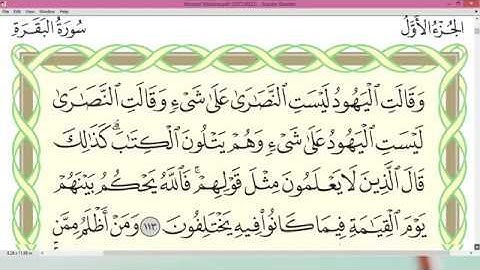 الجُزْءُ الأَوَّلُ
سُورَةُ البَقَرَةِ
وَقَالَتِ ٱلْيَهُودُ لَيْسَتِ ٱلنَّصَٰرَىٰ عَلَىٰ شَىْءٍ وَقَالَتِ ٱلنَّصَٰرَىٰ
لَيْسَتِ ٱلْيَهُودُ عَلَىٰ شَىْءٍ وَهُمْ يَتْلُونَ ٱلْكِتَٰبَۗ كَذَٰلِكَ
قَالَ ٱلَّذِينَ لَا يَعْلَمُونَ مِثْلَ قَوْلِهِمْۚ فَٱللَّهُ يَحْكُمُ بَيْنَهُمْ
يَوْمَ ٱلْقِيَٰمَةِ فِيمَا كَانُوا۟ فِيهِ يَخْتَلِفُونَ ١١٣ وَمَنْ أَظْلَمُ مِمَّن